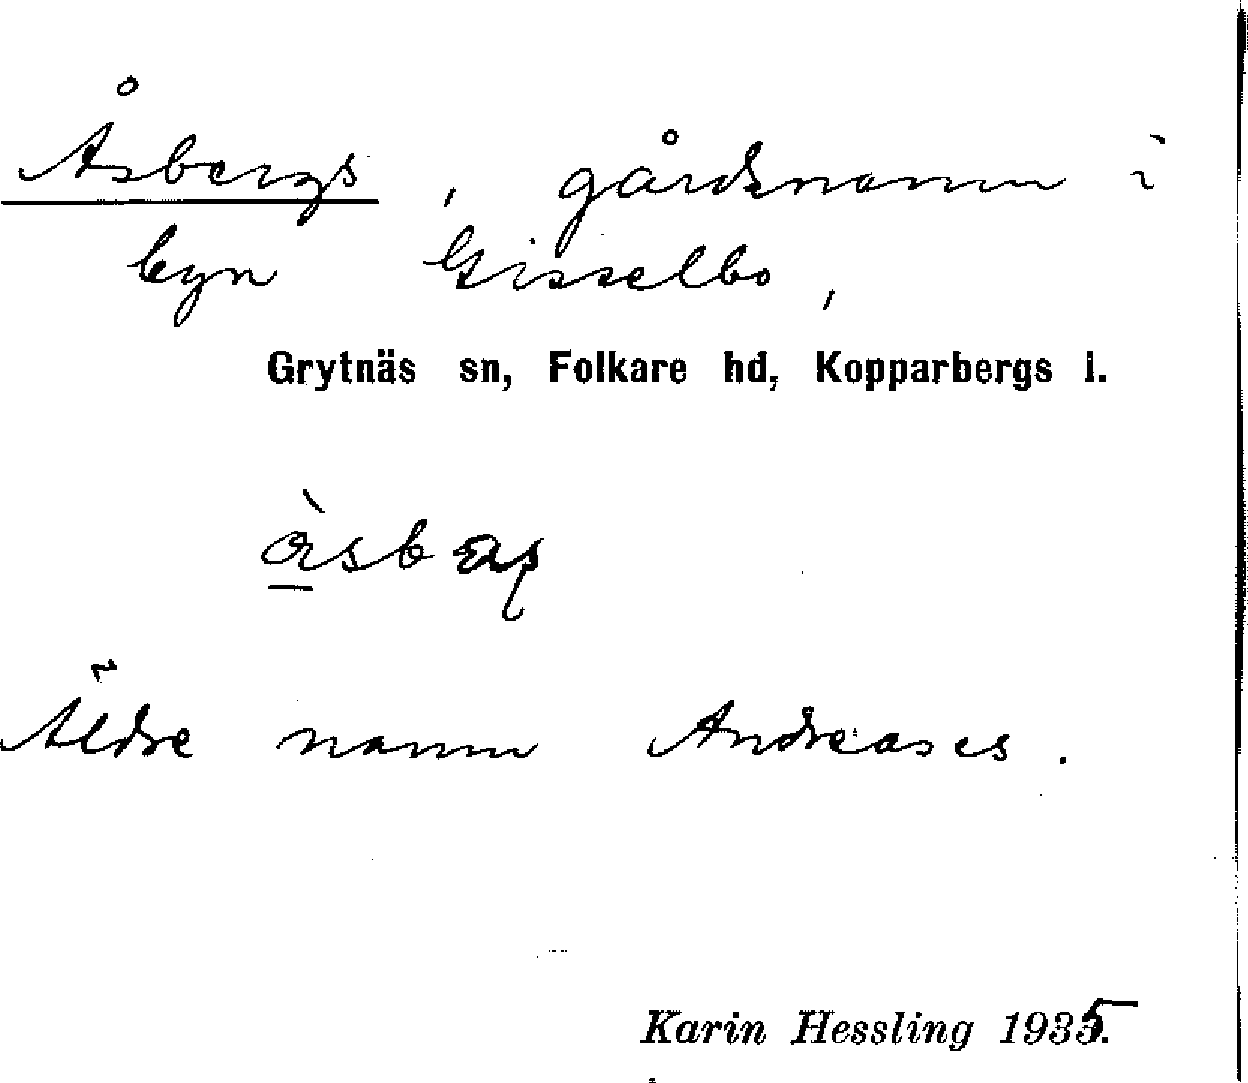 Åsbergs, gårdsnamn i
byn Gisselbo,
Grytnäs sn, Folkare hd, Kopparbergs l.
Äldre namn Andreases.
Karin Hessling 1935.